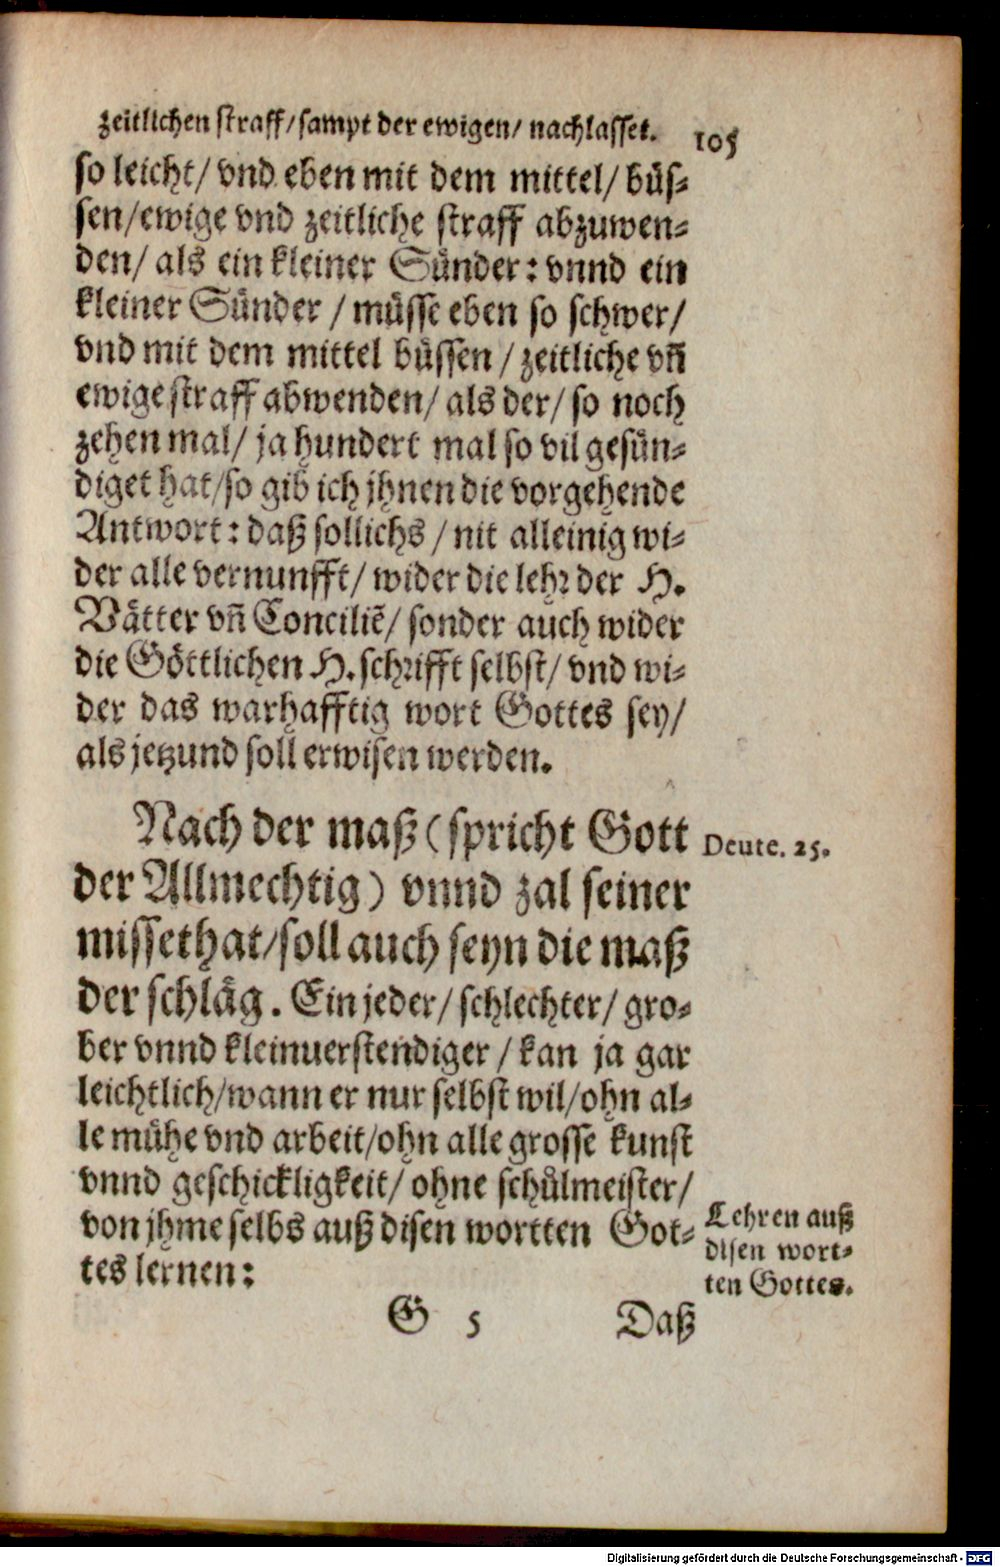 zeitlichen straff/ sampt der ewigen/ nachlasset. 105
so leicht/ vnd eben mit dem mittel/ büs⸗
sen/ ewige vnd zeitliche straff abzuwen⸗
den/ als ein kleiner Sünder: vnnd ein
kleiner Sünder / müsse eben so schwer/
vnd mit dem mittel büssen / zeitliche vñ
ewige straff abwenden/ als der/ so noch
zehen mal/ ja hundert mal so vil gesün⸗
diget hat/ so gib ich jhnen die vorgehende
Antwort: daß sollichs / nit alleinig wi⸗
der alle vernunfft/ wider die lehr der H.
Vätter vñ Conciliẽ/ sonder auch wider
die Göttlichen H. schrifft selbst/ vnd wi⸗
der das warhafftig wort Gottes sey/
als jetzund soll erwisen werden.
Nach der maß (spricht Gott
Deute. 25.
der Allmechtig) vnnd zal seiner
missethat/ soll auch seyn die maß
der schläg. Ein jeder/ schlechter/ gro⸗
ber vnnd kleinuerstendiger / kan ja gar
leichtlich/ wann er nur selbst wil/ ohn al⸗
le mühe vnd arbeit/ ohn alle grosse kunst
vnnd geschickligkeit/ ohne schůlmeister/
von jhme selbs auß disen wortten Got⸗
tes lernen:
Lehren auß
disen wort⸗
ten Gottes.
G 5 Daß
Digitalisierung gefördert durch die Deutsche Forschungsgemeinschaft - DFG